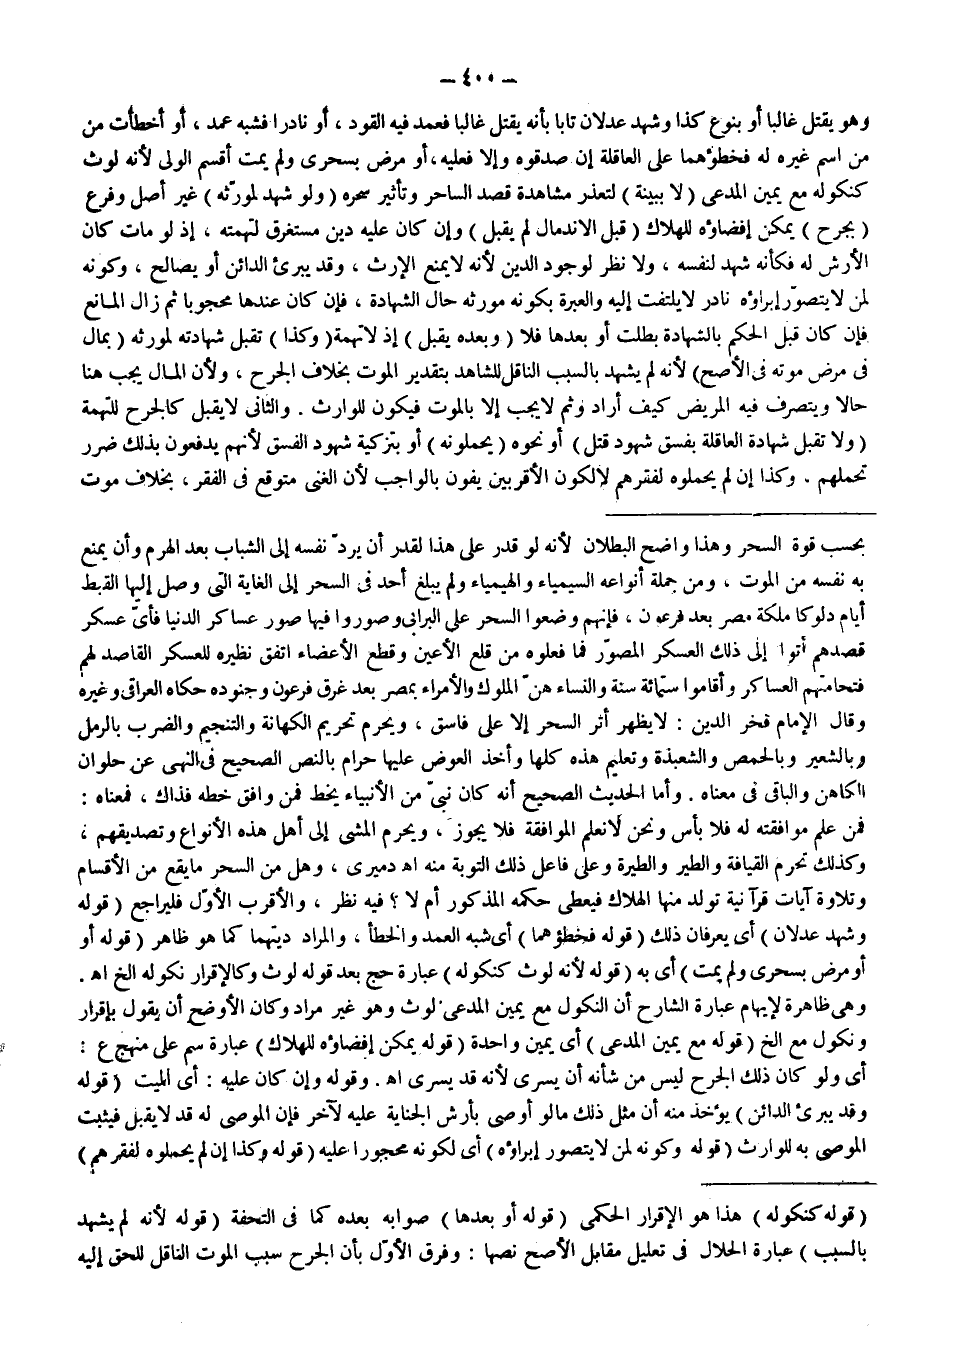 – ٤٠٠ –
وهو يقتل غالبا أو بنوع كذا وشهد عدلان تابا بأنه يقتل غالبا فعمد فيه القود ، أو نادرا فشبه عمد ، أو أخطأت من
من اسم غيره له فخطؤهما على العاقلة إن صدقوه وإلا فعليه، أو مرض بسحرى ولم يمت أقسم الولى لأنه لوث
كنكوله مع يمين المدعى ( لا ببينة ) لتعذر مشاهدة قصد الساحر وتأثير سحره ( ولو شهد لمورّثه ) غير أصل وفرع
( بجرح ) يمكن إفضاؤه للهلاك ( قبل الاندمال لم يقبل ) وإن كان عليه دين مستغرق لتهمته ، إذ لو مات كان
الأرش له فكأنه شهد لنفسه ، ولا نظر لوجود الدين لأنه لايمنع الإرث ، وقد يبرئ الدائن أو يصالح ، وكونه
لمن لايتصوّر إبراؤه نادر لايلتفت إليه والعبرة بكونه مورثه حال الشهادة ، فإن كان عندها محجوبا ثم زال المانع
فإن كان قبل الحكم بالشهادة بطلت أو بعدها فلا ( وبعده يقبل ) إذ لاتهمة( وكذا ) تقبل شهادته لمورثه ( بمال
فى مرض موته فى الأصح) لأنه لم يشهد بالسبب الناقل للشاهد بتقدير الموت بخلاف الجرح ، ولأن المال يجب هنا
حالا ويتصرف فيه المريض كيف أراد وثم لايجب إلا بالموت فيكون للوارث . والثانى لايقبل كالجرح للتهمة
( ولا تقبل شهادة العاقلة بفسق شهود قتل ) أو نحوه ( يحملونه ) أو بتزكية شهود الفسق لأنهم يدفعون بذلك ضرر
تحملهم . وكذا إن لم يحملوه لفقرهم لالكون الأقربين يفون بالواجب لأن الغنى متوقع فى الفقر ، بخلاف موت
بحسب قوة السحر وهذا واضح البطلان لأنه لو قدر على هذا لقدر أن يردّ نفسه إلى الشباب بعد الهرم وأن يمنع
به نفسه من الموت ، ومن جملة أنواعه السيمياء والهيمياء ولم يبلغ أحد فى السحر إلى الغاية التى وصل إليها القبط
أيام دلوكا ملكة مصر بعد فرعون ، فإنهم وضعوا السحر على البرانى وصوروا فيها صور عساكر الدنيا فأىّ عسكر
قصدهم أتوا إلى ذلك العسكر المصوّر فما فعلوه من قلع الأعين وقطع الأعضاء اتفق نظيره للعسكر القاصد لهم
فتحامتهم العساكر وأقاموا ستمائة سنة والنساء هنّ الملوك والأمراء بمصر بعد غرق فرعون وجنوده حكاه العراقى وغيره
وقال الإمام فخر الدين : لايظهر أثر السحر إلا على فاسق ، ويحرم تحريم الكهانة والتنجيم والضرب بالرمل
وبالشعير وبالحمص والشعبذة وتعليم هذه كلها وأخذ العوض عليها حرام بالنص الصحيح فى النهى عن حلوان
الكاهن والباقى فى معناه . وأما الحديث الصحيح أنه كان نبىّ من الأنبياء يخط فمن وافق خطه فذاك ، فمعناه :
فمن علم موافقته له فلا بأس ونحن لانعلم الموافقة فلا يجوز ، ويحرم المشى إلى أهل هذه الأنواع وتصديقهم ،
وكذلك تحرم القيافة والطير والطيرة وعلى فاعل ذلك التوبة منه اهـ دميرى ، وهل من السحر مايقع من الأقسام
وتلاوة آيات قرآنية تولد منها الهلاك فيعطى حكمه المذكور أم لا ؟ فيه نظر ، والأقرب الأوّل فليراجع ( قوله
وشهد عدلان ) أى يعرفان ذلك ( قوله فخطؤهما ) أى شبه العمد والخطأ ، والمراد ديتهما كما هو ظاهر ( قوله أو
أو مرض بسحرى ولم يمت ) أى به ( قوله لأنه لوث كنكوله ) عبارة حج بعد قوله لوث وكالإقرار نكوله الخ اهـ .
وهى ظاهرة لإيهام عبارة الشارح أن النكول مع يمين المدعى لوث وهو غير مراد وكان الأوضح أن يقول بإقرار
ونكول مع الخ ( قوله مع يمين المدعى ) أى يمين واحدة ( قوله يمكن إفضاؤه للهلاك ) عبارة سم على منهج ع :
أى ولو كان ذلك الجرح ليس من شأنه أن يسرى لأنه قد يسرى اهـ . وقوله وإن كان عليه : أى الميت ( قوله
وقد يبرئ الدائن ) يؤخذ منه أن مثل ذلك مالو أوصى بأرش الجناية عليه لآخر فإن الموصى له قد لايقبل فيثبت
الموصى به للوارث ( قوله وكونه لمن لايتصور إبراؤه ) أى لكونه محجورا عليه ( قوله وكذا إن لم يحملوه لفقرهم )
( قوله كنكوله ) هذا هو الإقرار الحكمى ( قوله أو بعدها ) صوابه بعده كما فى التحفة ( قوله لأنه لم يشهد
بالسبب ) عبارة الجلال فى تعليل مقابل الأصح نصها : وفرق الأوّل بأن الجرح سبب الموت الناقل للحق إليه